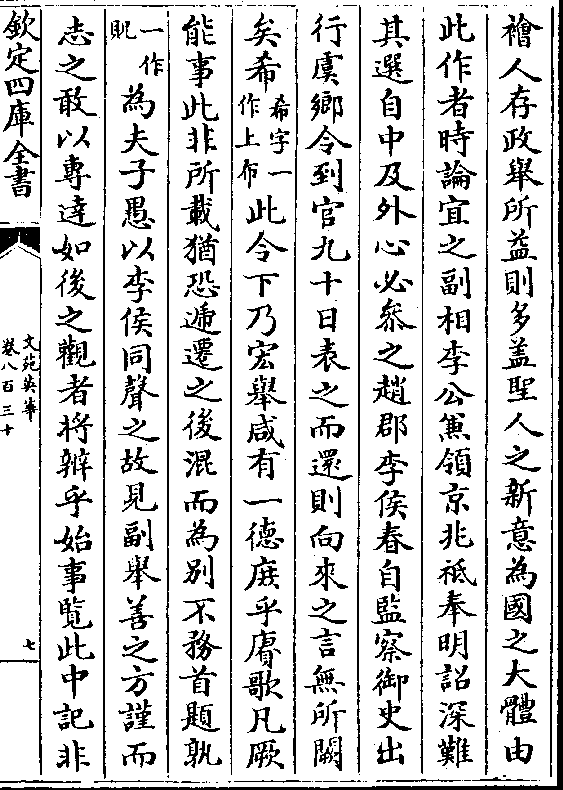 襘人存政舉所益則多葢聖人之新意為國之大體由
此作者時論宜之副相李公兼領京兆祇奉明詔深難
其選自中及外心必叅之趙郡李侯春自監察御史出
行虞鄉令到官九十日表之而還則向來之言無所闕
矣希希字一作上布此令下乃宏舉咸有一德庻乎賡歌凡厥
能事此非所載猶恐遞遷之後混而為別不務首題孰
一作貺為夫子愚以李侯同聲之故見副舉善之方謹而
志之敢以專達如後之觀者將辨乎始事覽此中記非
欽定四庫全書
文苑英華
卷八百三十
七